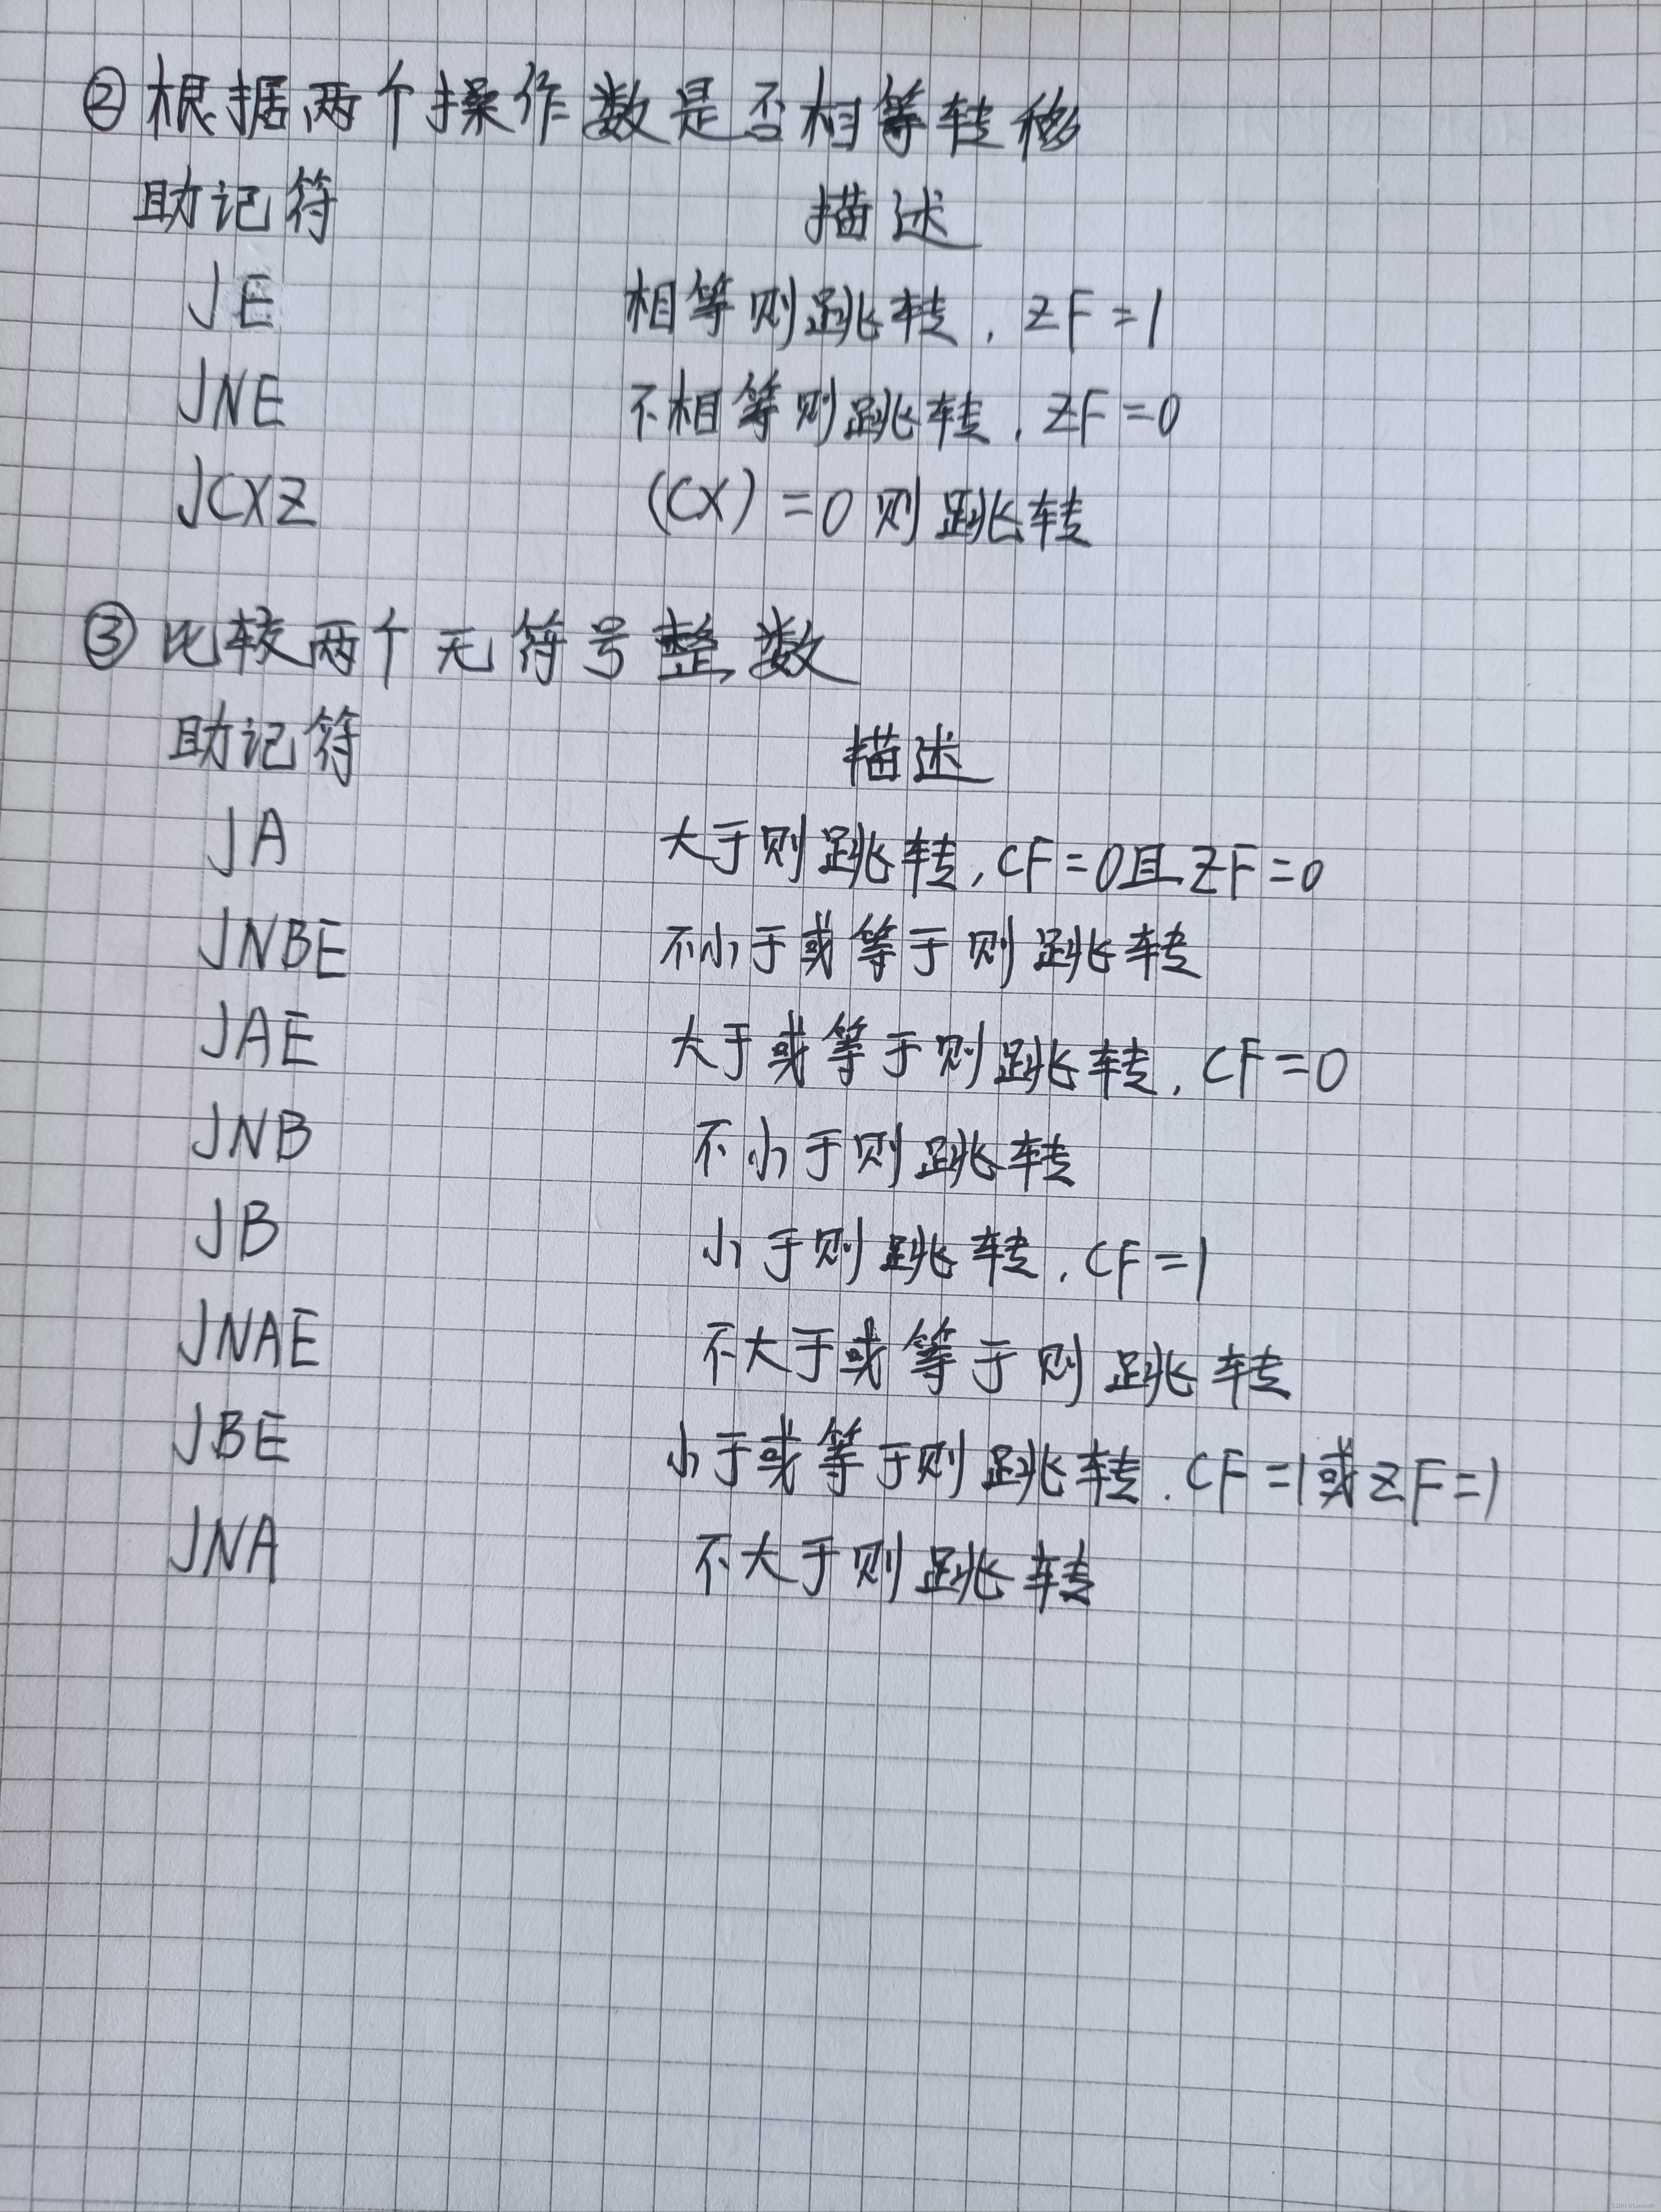 ②根据两个操作数是否相等转移
助记符 描述
JE 相等则跳转,ZF=1
JNE 不相等则跳转,ZF=0
JCXZ (CX)=0则跳转
③比较两个无符号整数
助记符 描述
JA 大于则跳转,CF=0且ZF=0
JNBE 不小于或等于则跳转
JAE 大于或等于则跳转,CF=0
JNB 不小于则跳转
JB 小于则跳转,CF=1
JNAE 不大于或等于则跳转
JBE 小于或等于则跳转.CF=1或ZF=1
JNA 不大于则跳转